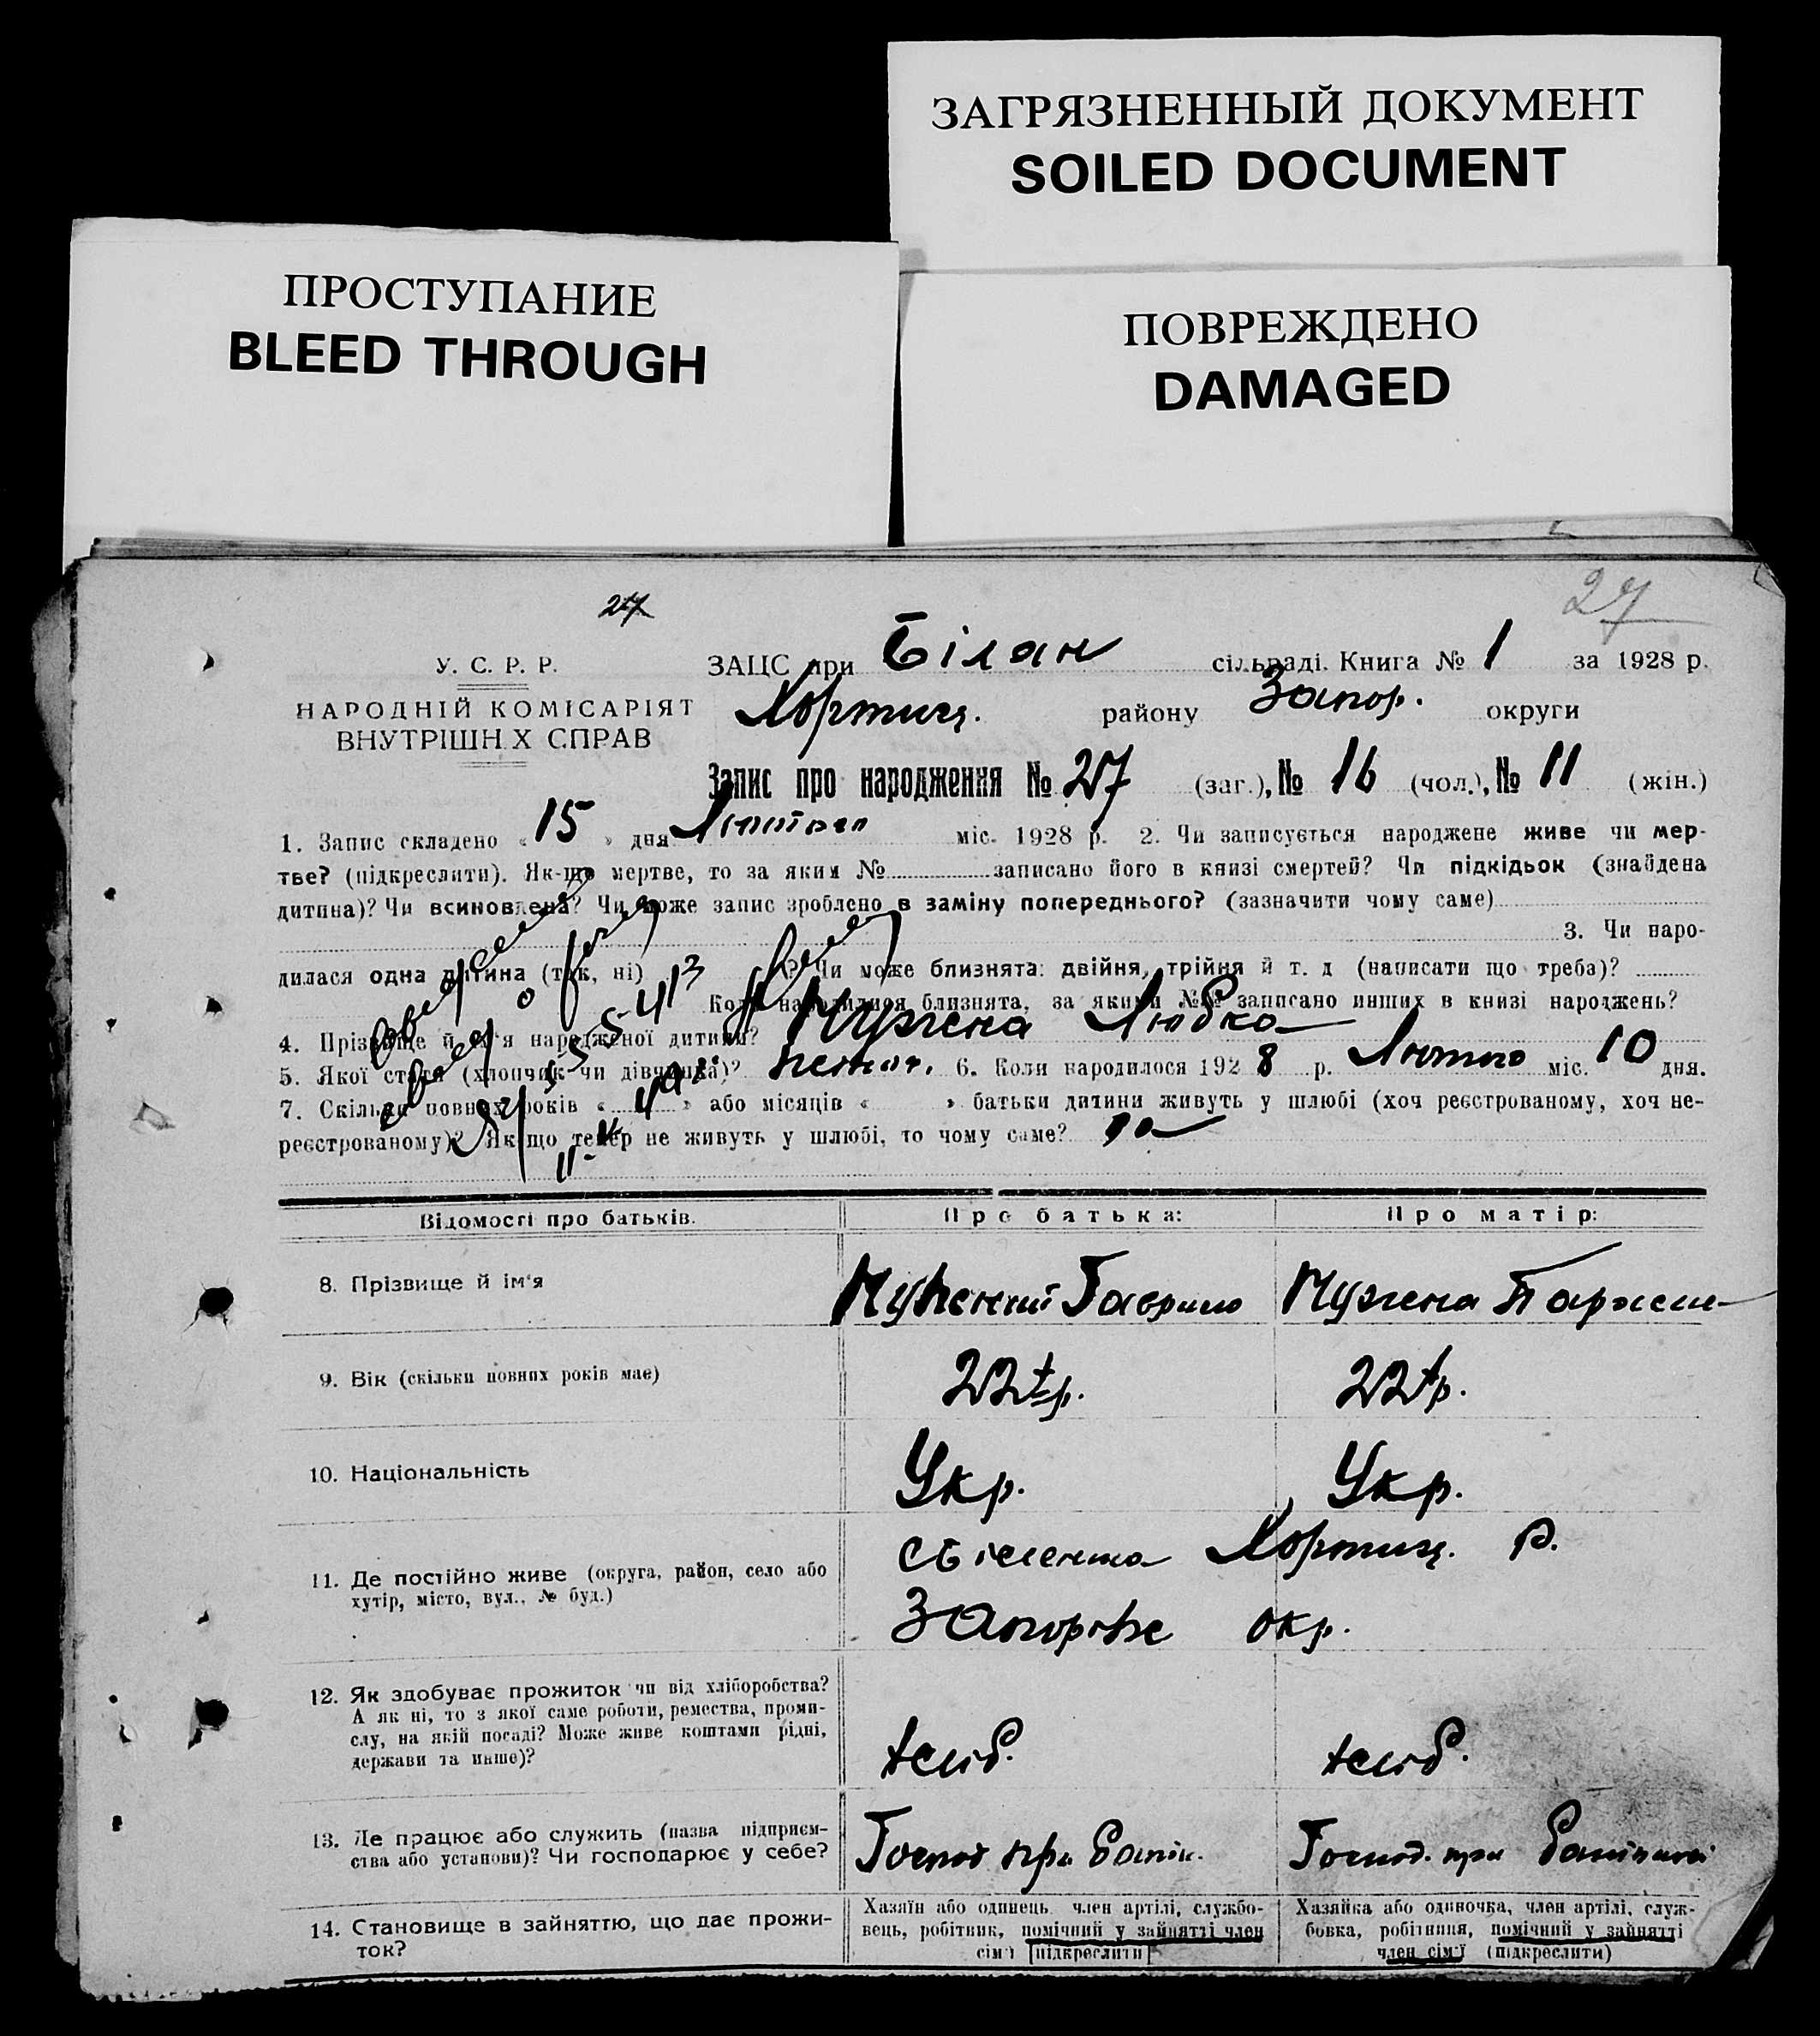 ЗАГРЯЗНЕННЫЙ ДОКУМЕНТ
SOILED DOCUMENT
ПРОСТУПАНИЕ
BLEED THROUGH
ПОВРЕЖДЕНО
DAMAGED
27
27
У. С. Р. Р.
НАРОДНІЙ КОМІСАРІЯТ
ВНУТРІШН Х СПРАВ
ЗАЦС при Білан сільраді. Книга № 1 за 1928 р.
Хортиц. району Запор. округи
Запис про народження № 27 (заг.), № 16 (чол.), № 11 (жін.)
1. Запис складено « 15 » дня Лютого міс. 1928 р. 2. Чи записується народжене живе чи мер-
тве? (підкреслити). Як-що мертве, то за яким № записано його в книзі смертей? Чи підкідьок (знайдена
дитина)? Чи всиновлена? Чи може запис зроблено в заміну попереднього? (зазначити чому саме)
3. Чи наро-
дилася одна дитина (так, ні) ? Чи може близнята: двійня, трійня й т. д (написати що треба)?
Коли народилися близнята, за якими №№ записано инших в книзі народжень?
4. Прізвище й ім'я народженої дитини? Любка
5. Якої статі (хлопчик чи дівчинка)? 6. Коли народилося 192 8 р. Лютого міс. 10 дня.
7. Скільки повних років « » або місяців « » батьки дитини живуть у шлюбі (хоч реєстрованому, хоч не-
реєстрованому)? Як що тепер не живуть у шлюбі, то чому саме?
Відомості про батьків. Про батька: Про матір:
8. Прізвище й ім'я Гаврило
9. Вік (скільки повних років має) 22 р. 22 р.
10. Національність Укр. Укр.
11. Де постійно живе (округа, район, село або
хутір, місто, вул., № буд.)
Хортиц. Р.
Запоріже окр.
12. Як здобуває прожиток чи від хліборобства?
А як ні, то з якої саме роботи, ремества, проми-
слу, на якій посаді? Може живе коштами рідні,
держави та инше)?
хліб. хліб.
13. Де працює або служить (назва підприєм-
ства або установи)? Чи господарює у себе?
Господ при Господ. при
14. Становище в зайняттю, що дає прожи-
ток?
Хазяїн або одинець член артілі, службо-
вець, робітник, помічний у зайнятті член
сім'ї (підкреслити)
Хазяйка або одиночка, член артілі, служ-
бовка, робітниця, помічний у зайнятті
член сім'ї (підкреслити)